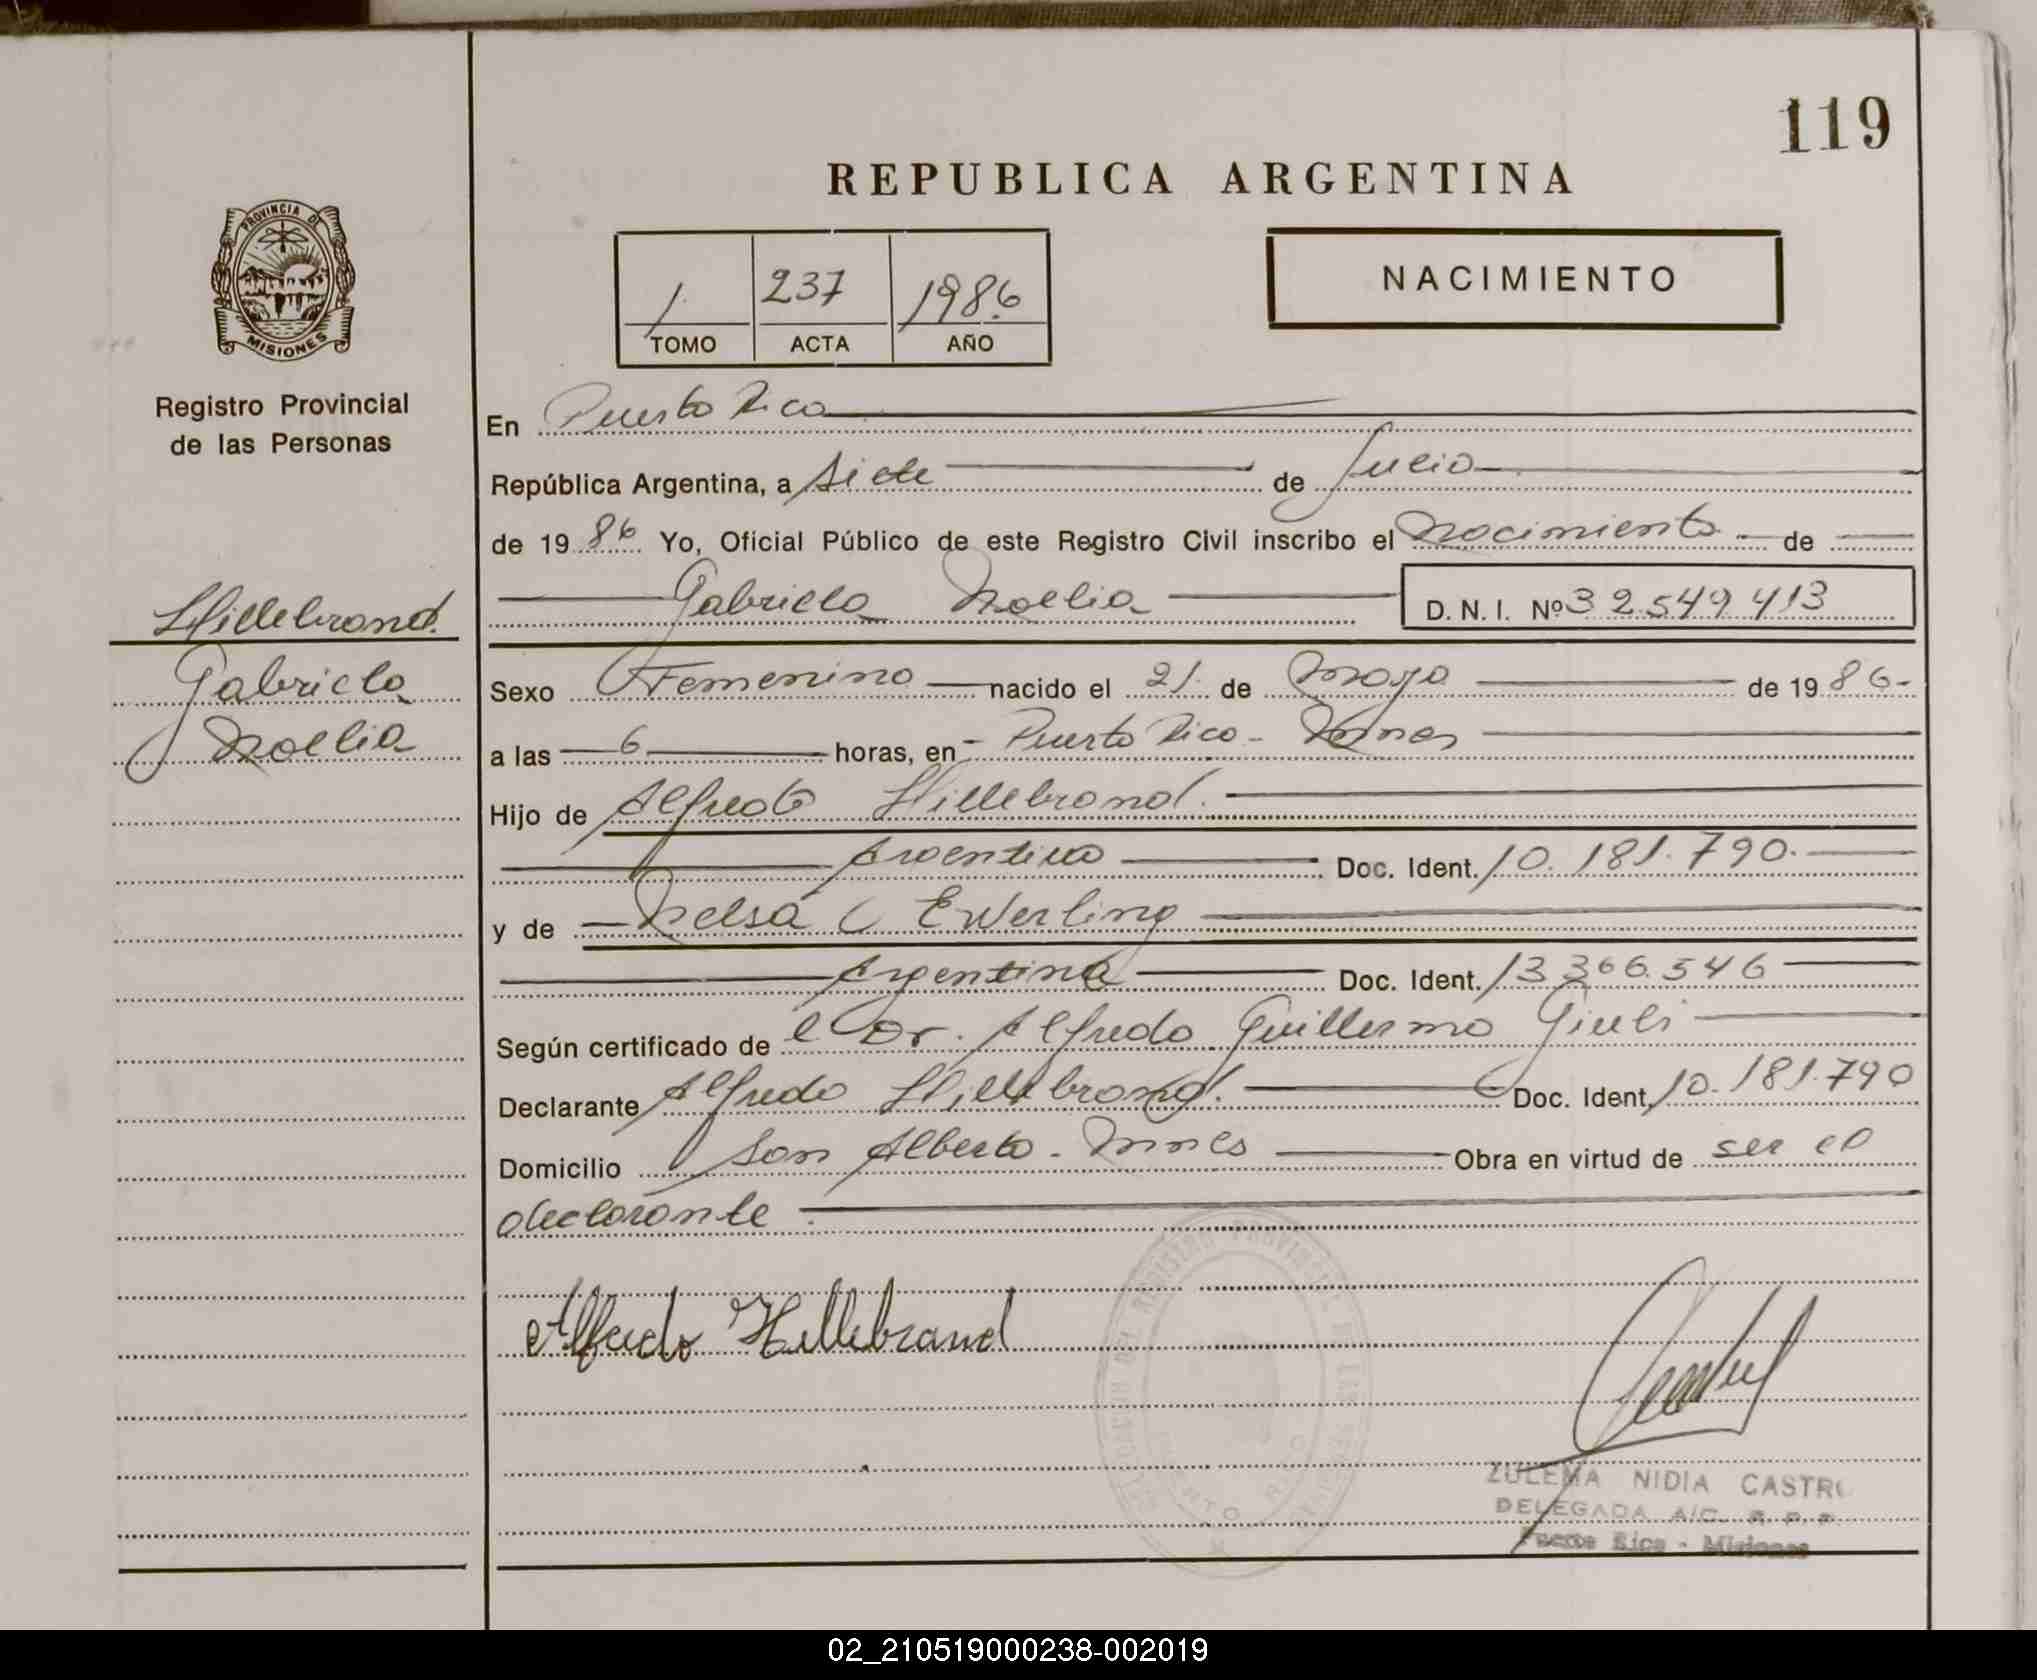 119
REPUBLICA ARGENTINA
PROVINCIA DE
MISIONES
Registro Provincial
de las Personas
1 237 1986
TOMO ACTA AÑO
NACIMIENTO
En Puerto Rico
República Argentina, a Siete de Julio
de 19 86 Yo, Oficial Público de este Registro Civil inscribo el Nacimiento de
Gabriela Noelia D. N. I. Nº 32.549.413
Hillebrand.
Gabriela
Noelia
Sexo Femenino nacido el 21 de Mayo de 19 86-
a las 6 horas, en - Puerto Rico - Mnes
Hijo de Alfredo Hillebrand.
Argentino Doc. Ident. 10.181.790.
y de Nelsa Ewerling
Argentina Doc. Ident. 13.366.546
Según certificado de el Dr. Alfredo Guillermo Giuli
Declarante Alfredo Hillebrand. Doc. Ident. 10.181.790
Domicilio San Alberto - Mnes Obra en virtud de ser el
declarante.
Alfredo Hillebrand
ZULEMA NIDIA CASTRO
DELEGADA A/C. R. P. P.
Puerto Rico - Misiones
02_210519000238-002019